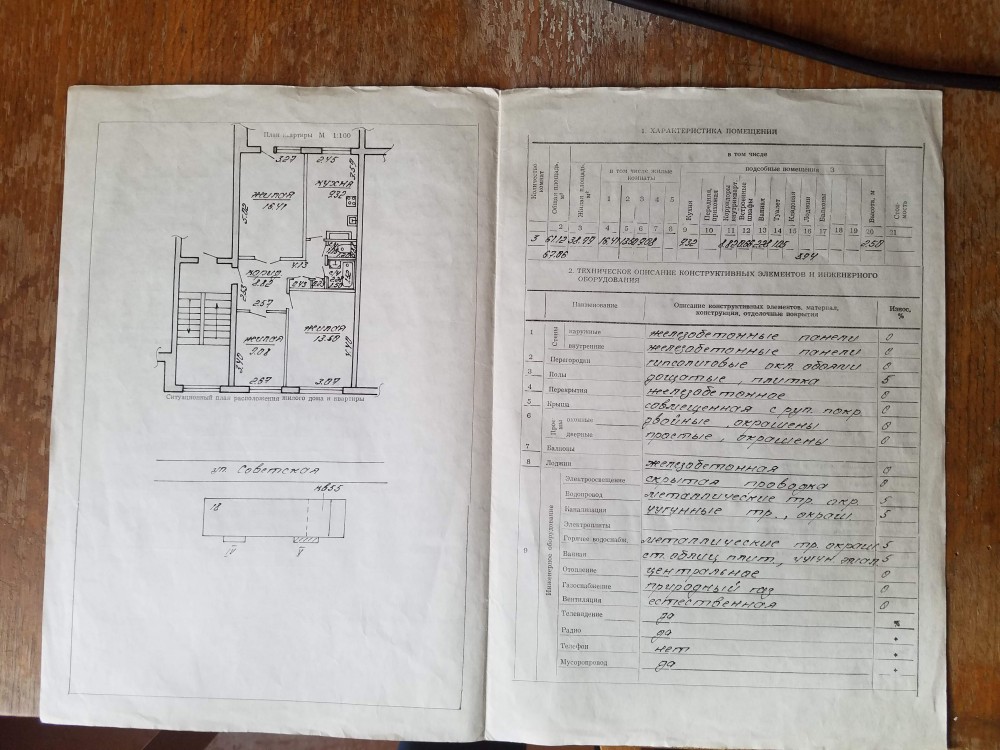 План квартиры М 1:100
3.07 2.45
ЖИЛАЯ
16.41
КУХНЯ
9.32
3.59
5.02
4.13
КОРИД.
8.82
2.53
2.43
2.57
ЖИЛАЯ
9.08
ЖИЛАЯ
13.50
3.40
2.67 3.07
Ситуационный план расположения жилого дома и квартиры
ул. Советская
кв 55
18
IV V
1. ХАРАКТЕРИСТИКА ПОМЕЩЕНИЯ
Количество комнат
Общая площадь, м²
Жилая площадь, м²
в том числе
в том числе жилые комнаты
подсобные помещения 3
1 2 3 4 5
Кухни
Передняя, прихожая
Коридоры внутрикварт.
Встроенные шкафы
Ванная
Туалет
Кладовая
Лоджии
Балконы
Высота, м
2 3 4 5 6 7 8 9 10 11 12 13 14 15 16 17 18 19 20 21
3 61.12 38.99 16.41 13.50 9.08 9.32 8.82 2.50
57.06 3.94
2. ТЕХНИЧЕСКОЕ ОПИСАНИЕ КОНСТРУКТИВНЫХ ЭЛЕМЕНТОВ И ИНЖЕНЕРНОГО
ОБОРУДОВАНИЯ
Наименование
Описание конструктивных элементов, материал, конструкция, отделочные покрытия
Износ, %
1 Стены наружные железобетонные панели 0
внутренние железобетонные панели 0
2 Перегородки гипсолитовые окл. обоями 0
3 Полы дощатые, плитка 5
4 Перекрытия железобетонное 0
5 Крыша совмещенная с рул. покр. 0
6 Проемы оконные двойные, окрашены 0
дверные простые, окрашены 0
7 Балконы
8 Лоджии железобетонная 0
9 Инженерное оборудование
Электроосвещение скрытая проводка 0
Водопровод металлические тр. окр. 5
Канализация чугунные тр., окраш. 5
Электроплиты
Горячее водоснабж. металлические тр. окраш. 5
Ванная ст. облиц. плит., чугун эмал. 5
Отопление центральное 0
Газоснабжение природный газ 0
Вентиляция естественная 0
Телевидение да
Радио да +
Телефон нет +
Мусоропровод да +